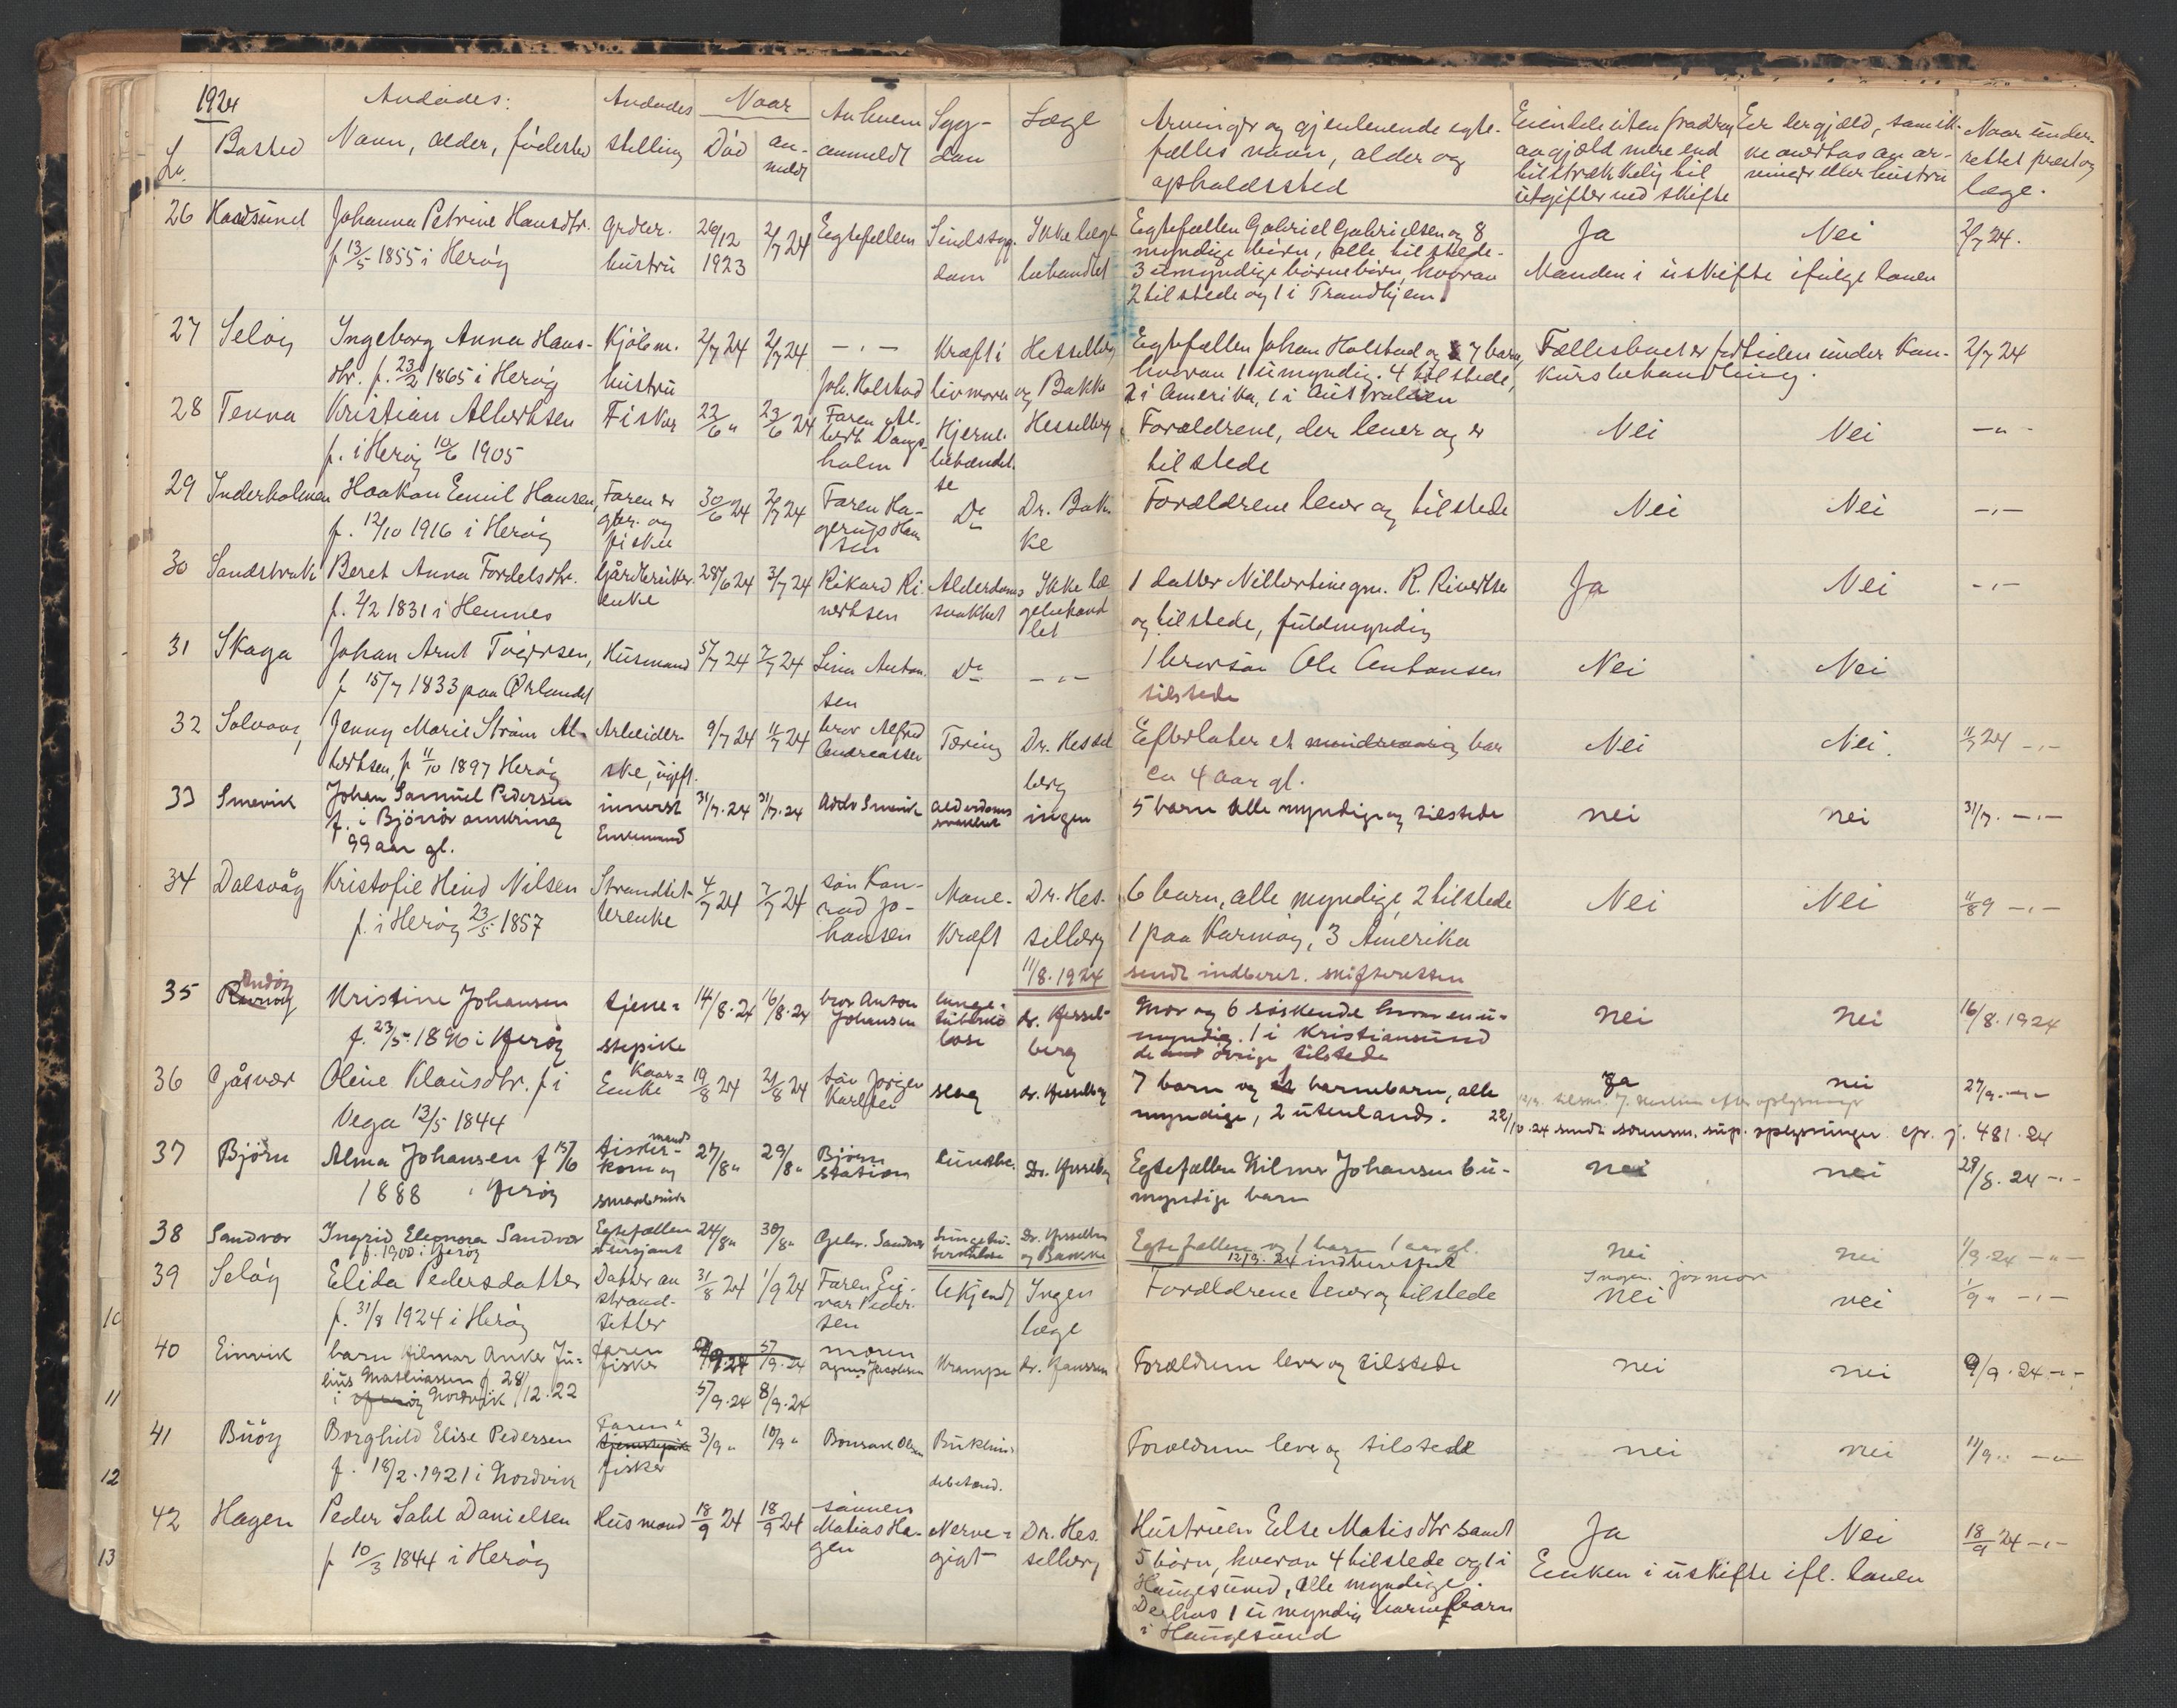 1924
Avdødes:
Avdødes
Naar
Av hvem
Syg-
Læge
Arvinger og gjenlevende egte-
Eiendele uten fradrag
Er der gjæld, som ik-
Naar under-
Lø.
Bosted
Navn, alder, fødested
stilling
Død
an-
meldt
anmeldt
dom
fælles navn, alder og
opholdssted
av gjæld mere end
tilstrækkelig til
utgifter ved skifte
ke overtas av ar-
vinger eller hustru
rettet præst og
læge.
26
Johanna Petrine Hansdtr.
f 13/5 1855 i Herøy
grdbr.
hustru
26/12
1923
2/7 24
Egtefællen
Sindssyg-
dom
Ikke læge
behandlet
Egtefællen Gabriel Gabrielsen og 8
myndige børn, alle tilstede.
3 umyndige børnebørn, hvorav
2 tilstede og 1 i Trondhjem
Ja
Nei
2/7 24.
Manden i uskifte ifølge loven
27
Seløy
Ingeborg Anna Hans-
dtr. f. 23/2 1865 i Herøy
Kjøbm.
hustru
2/7 24
2/7 24
— " —
Joh. Holstad
Kræft i
livmoren
Hesselberg
og Bakke
Egtefællen Johan Holstad og 7 barn,
hvorav 1 umyndig. 4 tilstede,
2 i Amerika, 1 i Australien
Fællesboet er for tiden under Kon-
kursbehandling.
2/7 24
28
Tenna
Kristian Albertsen
f. i Herøy 10/6 1905
Fisker
22/6 "
23/6 24
Faren Al-
bert Dangs-
holm
Hjerne-
betændel-
se
Hesselberg
Forældrene, der lever og er
tilstede
Nei
Nei
— " —
29
Inderholmen
Haakon Emil Hansen,
f. 12/10 1916 i Herøy
Faren er
gbr. og
fisker
30/6 24
2/7 24
Faren Ha-
gerup Han
sen
Do
Dr. Bak-
ke
Forældrene lever og tilstede
Nei
Nei
— " —
30
Sandstrak
Beret Anna Tordelsdtr.
f. 2/2 1831 i Hemnes
Gårdbruker-
enke
28/6 24
3/7 24
Rikard Ri-
vertsen
Alderdoms
svakhet
Ikke læ-
gebehand
let
1 datter Nilbertine gm. R. Rivertsen
og tilstede, fuldmyndig
Ja
Nei
— " —
31
Skaga
Johan Arnt Toersen,
f 15/7 1833 paa Ørlandet
Husmand
5/7 24
7/7 24
Lina Anton-
sen
Do
— " —
1 brorsøn Ole Antonsen
tilstede
Nei
Nei
32
Solvang
Jenny Marie Strøm Al-
bertsen, f 11/10 1897 Herøy
Arbeider-
ske, ugift.
9/7 24
11/7 24
bror Alfred
Andreassen
Tæring
Dr. Hessel
berg
Efterlater et mindreaarig bar
ca 4 aar gl.
Nei
Nei.
11/7 24 — " —
33
Smevik
Johan Samuel Pedersen
f. i Bjørnør omkring
99 aar gl.
innerst
Enkemand
31/7. 24
31/7. 24
Adolv Smevik
alderdoms
svakhet
ingen
5 barn alle myndige og tilstede
nei
nei
31/7. — " —
34
Dalsvåg
Kristofie Hind Nilsen
f. i Herøy 23/5 1857
Strandsit-
terenke
4/7 24
7/7 24
søn Kon-
rad Jo-
hansen
Mave-
kræft
Dr. Hes-
selberg
6 barn, alle myndige, 2 tilstede
1 paa Karmøy, 3 Amerika
Nei
Nei
11/8 — " —
11/8. 1924
sendt indberet. skifteretten
35
Indøy
Kristine Johansen
f. 23/5 1896 i Herøy
tjene-
stepike
14/8. 24
16/8. 24
bror Anton
Johansen
lunge-
tuberku
lose
dr. Hessel-
berg
Mor og 6 søskende hvorav en u-
myndig. 1 i Kristiansund
de øvrige tilstede
nei
nei
16/8. 1924
36
Gåsvær
Oline Klausdtr. f i
Vega 12/5 1844
Kaar-
Enke
19/8 24
21/8 24
søn Jørgen
slag
dr. Hesselberg
7 barn og barnebarn, alle
myndige, 2 utenlands.
Ja
nei
22/10. 24 sendt sorensk. sup. oplysninger cfr. j. 481. 24
37
Bjørn
Alma Johansen f 15/6
1888 i Herøy
fisker-
mands
kone og
27/8 "
29/8 "
Bjørn
station
Dr. Hesselberg
Egtefællen Hilmer Johansen 6 u-
myndige barn
nei
nei
29/8. 24 — " —
38
Sandvær
Ingrid Eleonora Sandvær
f. 1900 i Herøy
Egtefællen
24/8 "
30/8 "
Gebr. Sandvær
Lungetu-
berkulose
Dr. Hesselberg
og Bakke
Egtefællen og 1 barn 1 aar gl.
12/9. 24 indberettet
nei
nei
1/9. 24 — " —
39
Seløy
Elida Pedersdatter
f. 31/8 1924 i Herøy
Datter av
strand-
sitter
31/8 24
1/9 24
Faren Ei-
var Peder-
sen
Ukjendt
Ingen
læge
Forældrene lever og tilstede
nei
nei
1/9 " — " —
40
Einvik
barn Hilmar Anker Ju-
lius Mathiassen f 28/12. 22
i Nordvik
faren
fisker
5/9. 24
5/9. 24
8/9. 24
moren
Agnes Jacobsen
Krampe
dr. Hanssen
Forældrene lever og tilstede
nei
nei
9/9. 24 — " —
41
Buøy
Borghild Elise Pedersen
f. 18/2. 1921 i Nordvik
Faren
tjenestepike
fisker
3/9 "
10/9 "
Bonsak Olsen
Bukhin-
debetænd.
Forældrene lever og tilstede
nei
nei
11/9 " — " —
42
Hagen
Peder Sahl Danielsen
f 10/3 1844 i Herøy
Husmand
18/9 24
18/9 24
sønnen
Matias Ha-
gen
Nerve-
gigt
Dr. Hes-
selberg
Hustruen Else Matisdtr samt
5 børn, hvorav 4 tilstede og 1 i
Haugesund, alle myndige.
Derhos 1 umyndig barnebarn
i Haugesund
Ja
Nei
18/9 24 — " —
Enken i uskifte ifl. loven
10
11
12
13